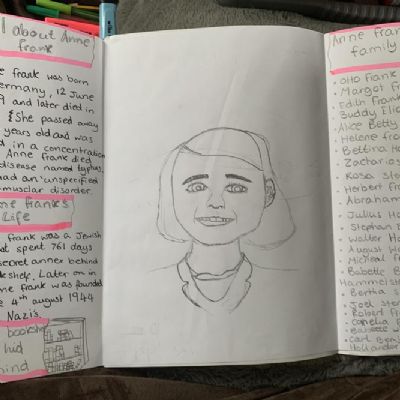 l about Anne
frank
e frank was born
ermany, 12 June
9 and later died in
She passed away
years old and was
d in a concentration
Anne frank died
disease named typhus,
had an unspecified
muscular disorder.
ne frank's
Life
frank was a Jewish
spent 761 days
secret annex behind
kshelf. Later on in
ne frank was founded
4th august 1944
Nazi's.
bookshe
hid
hind
Anne fran
family
• Otto Frank
• Margot fra
• Edith frank
• Buddy Elia
• Alice Betty
• Helene fran
• Bettina H
• Zacharias
• Rosa ste
• Herbert fra
• Abraham
• Julius H
• Stephan
• Walter H
• August W
• Micheal fr
• Babette B
Hammelste
• Bertha s
• Joel ste
• Robert fr
• Babette
• Carl Ben
Hollander